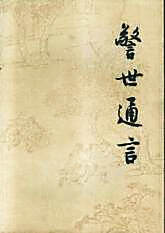 警世通言